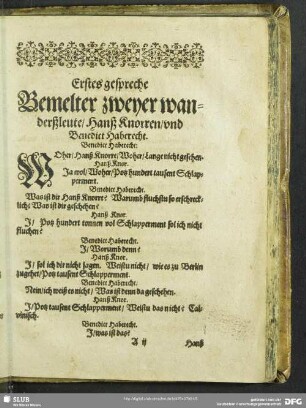 Erstes gespreche
Bemelter zweyer wan-
derßleute/ Hanß Knorren/vnd
Benedict Haberecht.
Benedict Haberecht.
WOher/ Hanß Knorre/ Woher/ lange nicht gesehen.
Hanß Knor.
Ja wol/ Woher/ Potz hundert tausent Schlap-
perment.
Benedict Haberecht.
Was ist dir Hanß Knorre? Warumb fluchstu so erschreck-
licht Was ist dir geschehen?
Hanß Knor.
J/ Potz hundert tonnen vol Schlapperment sol ich nicht
fluchen?
Benedict Haberecht.
J/ Worumb denn?
Hanß Knor.
J/ sol ich dir nicht sagen. Weistu nicht/ wie es zu Berlin
zugehet/ Potz tausent Schlapperment.
Benedict Haberecht.
Nein/ ich weiß es nicht/ Was ist denn da geschehen.
Hanß Knor.
J/ Potz tausent Schlapperment/ Weistu das nicht? Cal-
vinisch.
Benedict Haberecht.
J/ was ist das?
A ij Hanß
SLUB